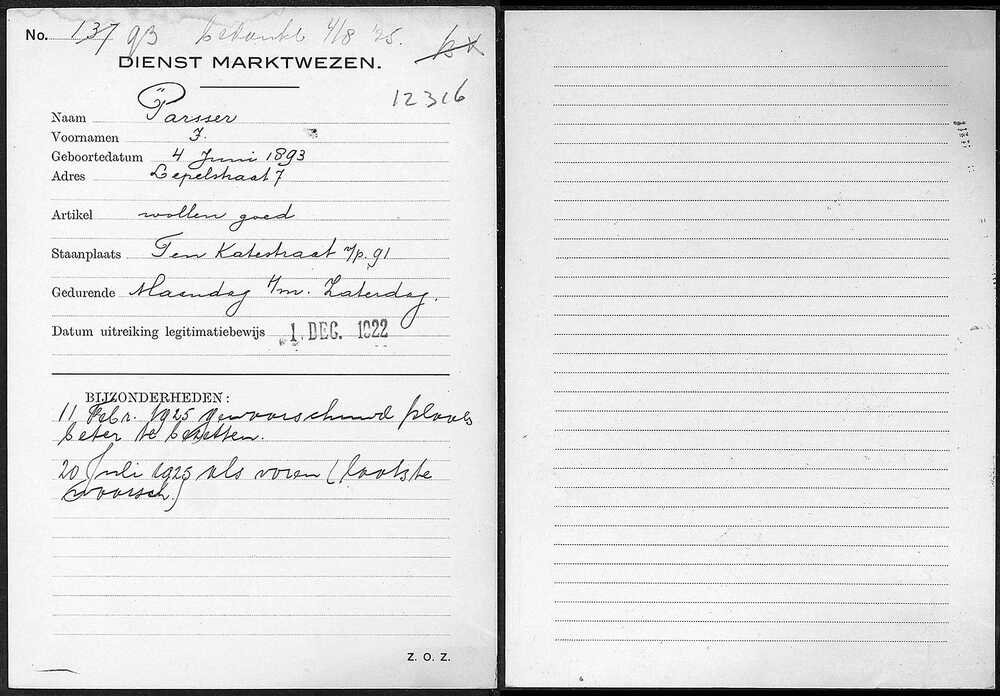 No. 137 93 bedankt 4/8 '25.
DIENST MARKTWEZEN.
12316
Naam Parsser
Voornamen J.
Geboortedatum 4 Juni 1893
Adres Lepelstraat 7
Artikel wollen goed
Staanplaats Ten Katestraat v/p. 91
Gedurende Maandag t/m. Zaterdag.
Datum uitreiking legitimatiebewijs 1 DEC. 1922
BIJZONDERHEDEN:
11 Febr. 1925 gewaarschuwd plaats
beter te bezetten.
20 Juli 1925 als voren (laatste
waarsch.)
Z. O. Z.